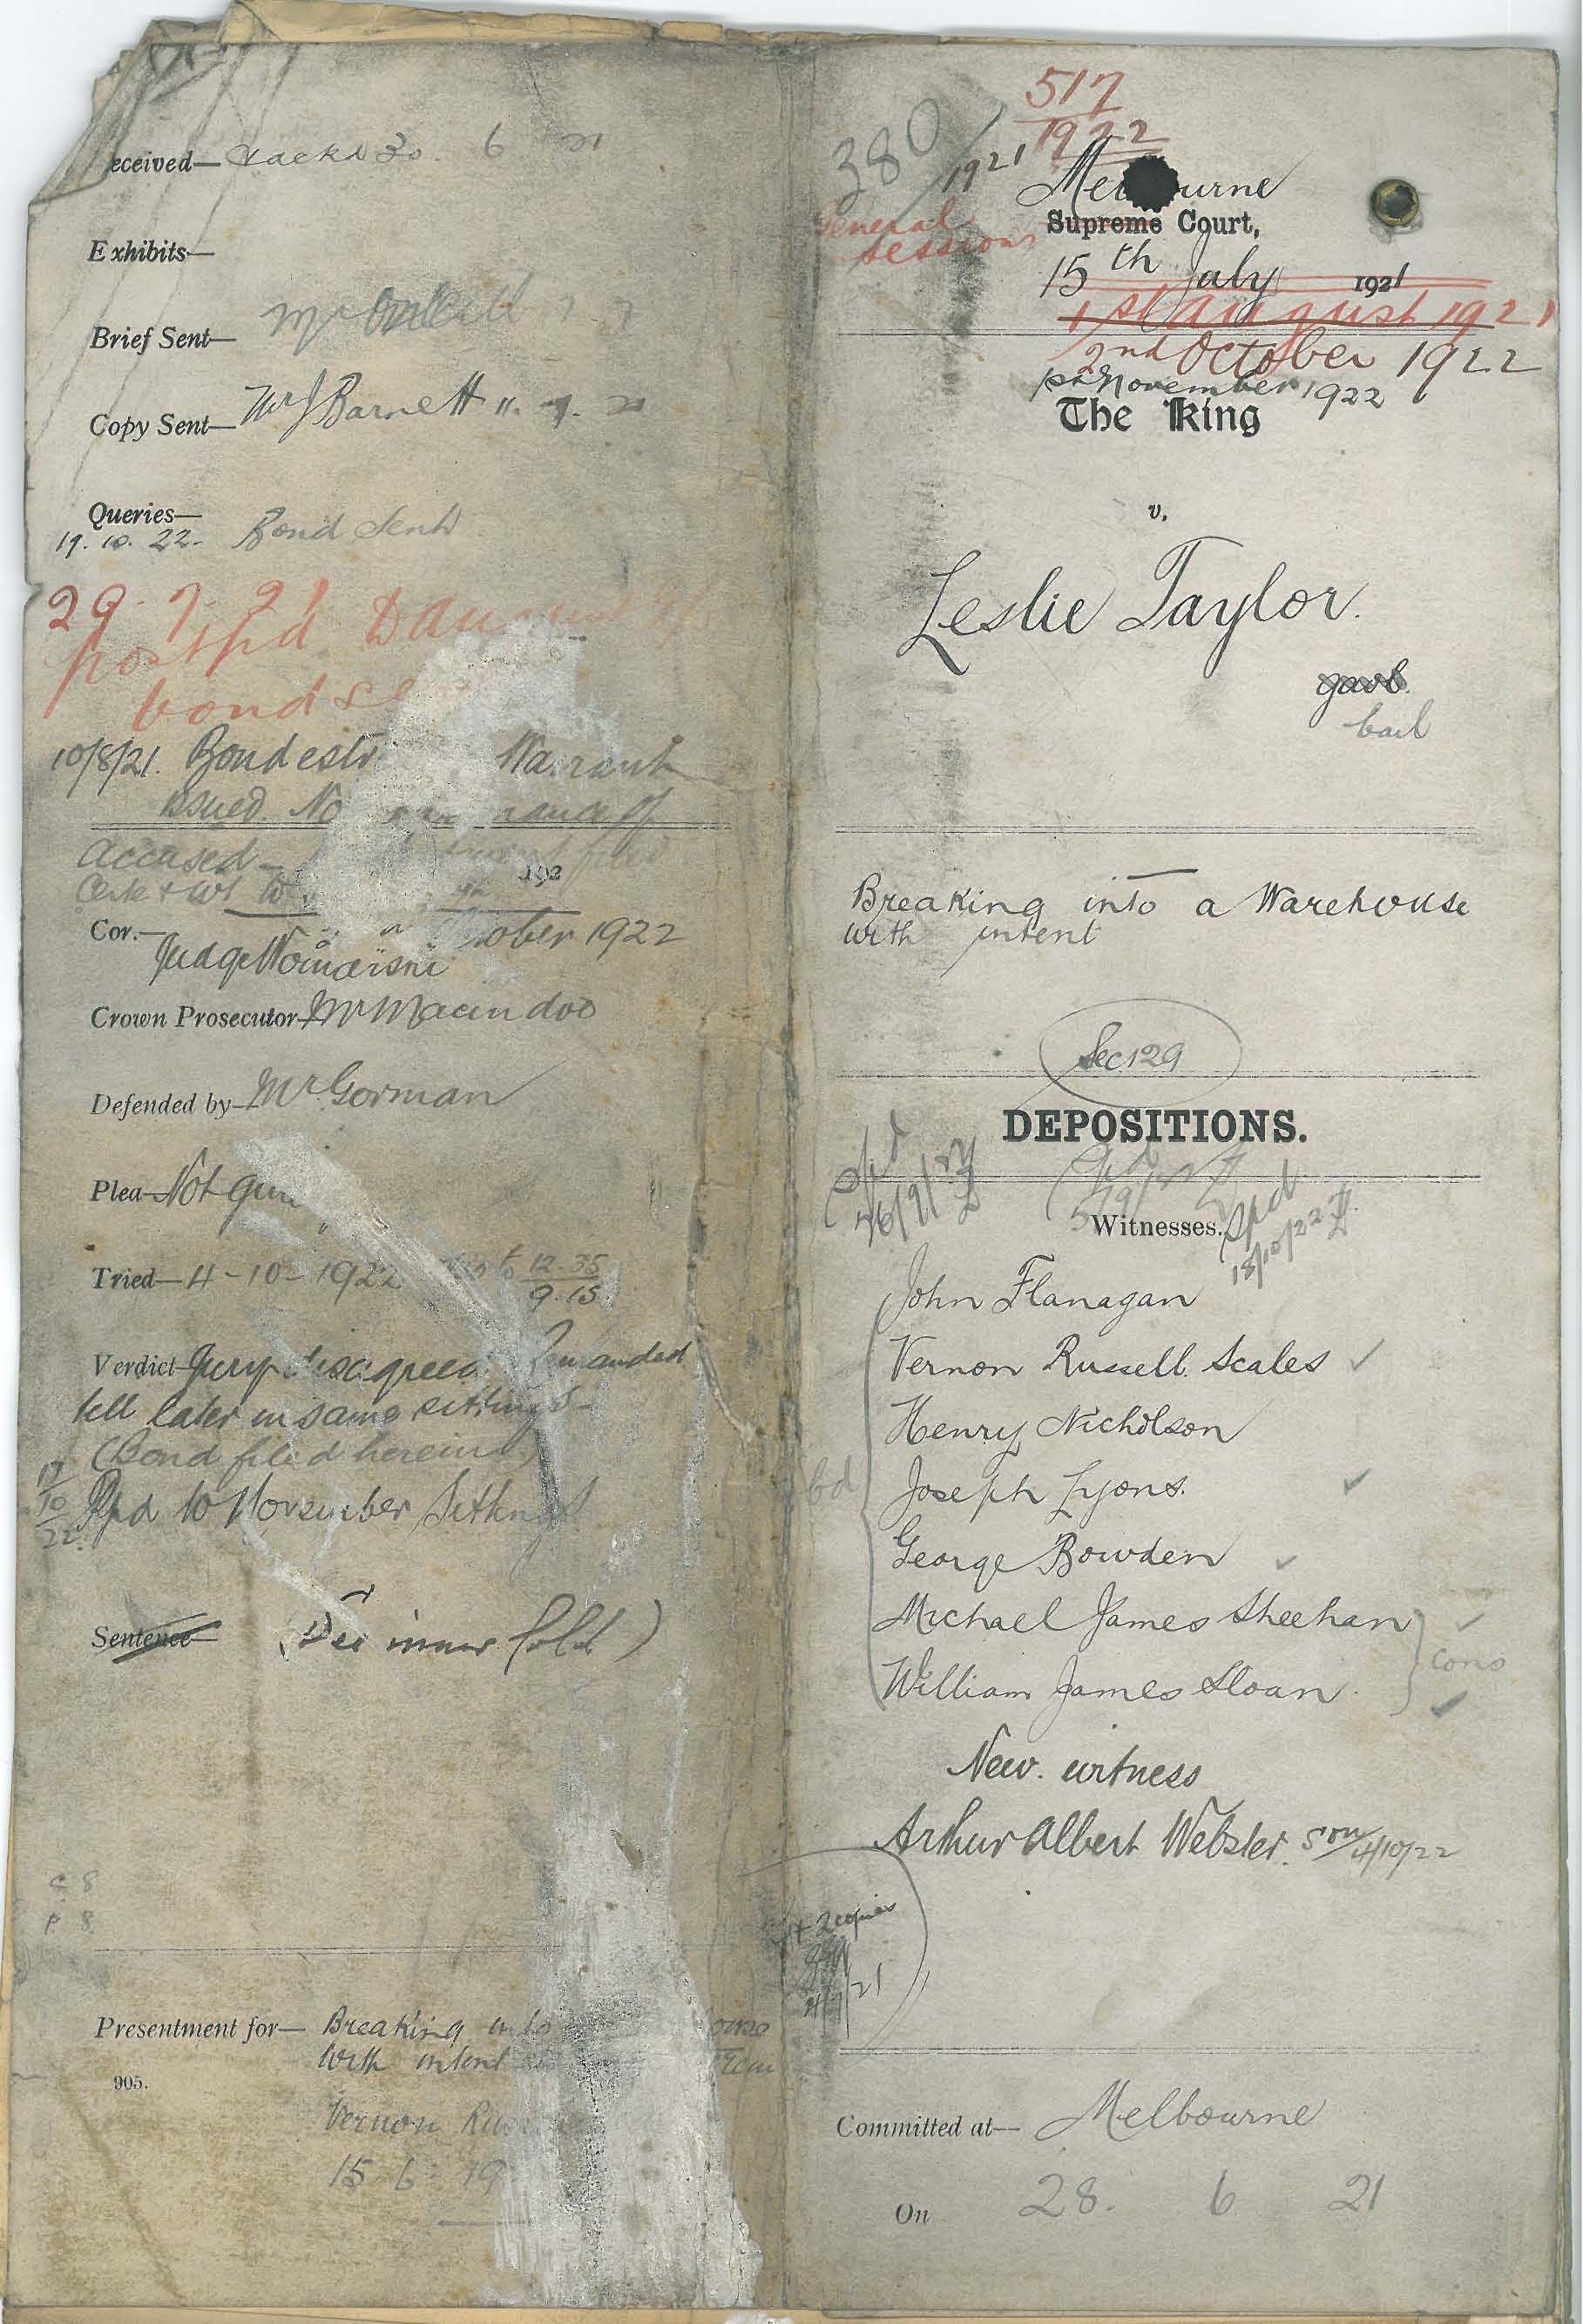 eceived— 30. 6 21
Exhibits—
Brief Sent—
Copy Sent— Mr J Barnett 11. 7. 21
Queries—
19. 10. 22. Bond Sent
29. 7. 21
postpd
bond se
10/8/21. Bond estr Warrant
issued. No rance of
Accused—
192
Cor.— ober 1922
Judge
Crown Prosecutor— Mr Macindoe
Defended by— Mr Gorman
Plea— Not gui
Tried— 4-10-1922 to 12.35
9.15
Verdict— Jury disagreed Remanded
till later in same sittings—
(Bond filed herein)
17/10/22 Ppd to November Sittings
Sentence— (See inner fold)
C 8
P 8
Presentment for— Breaking into
with intent
905.
Vernon Russ
15 6 19
517
1922
380/1921
Melbourne
General
Sessions
Supreme Court,
15th July 1921
1st August 1921
2nd October 1922
November 1922
The King
v.
Leslie Taylor.
gaol.
bail
Breaking into a Warehouse
with intent
Sec 129
DEPOSITIONS.
Witnesses.
18/10/22
John Flanagan
Vernon Russell Scales ✓
Henry Nicholson
bd
Joseph Lyons. ✓
George Bowden ✓
Michael James Sheehan ✓
cons
William James Sloan. ✓
New. witness
Arthur Albert Webster. 4/10/22
2 copies
Committed at— Melbourne
On 28. 6 21